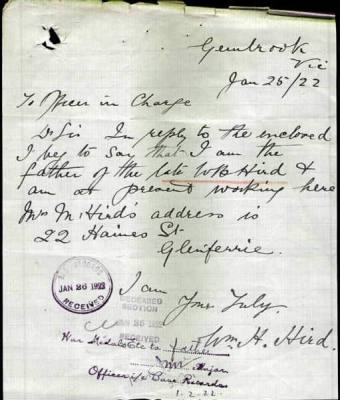 Gembrook
Vic
Jan 25/22
To Officer in Charge
D Sir In reply to the enclosed
I beg to say that I am the
father of the late WB Hird &
am at present working here
Mrs M Hird's address is
22 Haines St
Glenferrie
I am
Yours Truly
Wm H. Hird.
JAN 26 1922
RECEIVED
DECEASED
SECTION
JAN 26 1922
RECEIVED
War Medals Etc to father
Major
Officer i/c Base Records
1.2.22